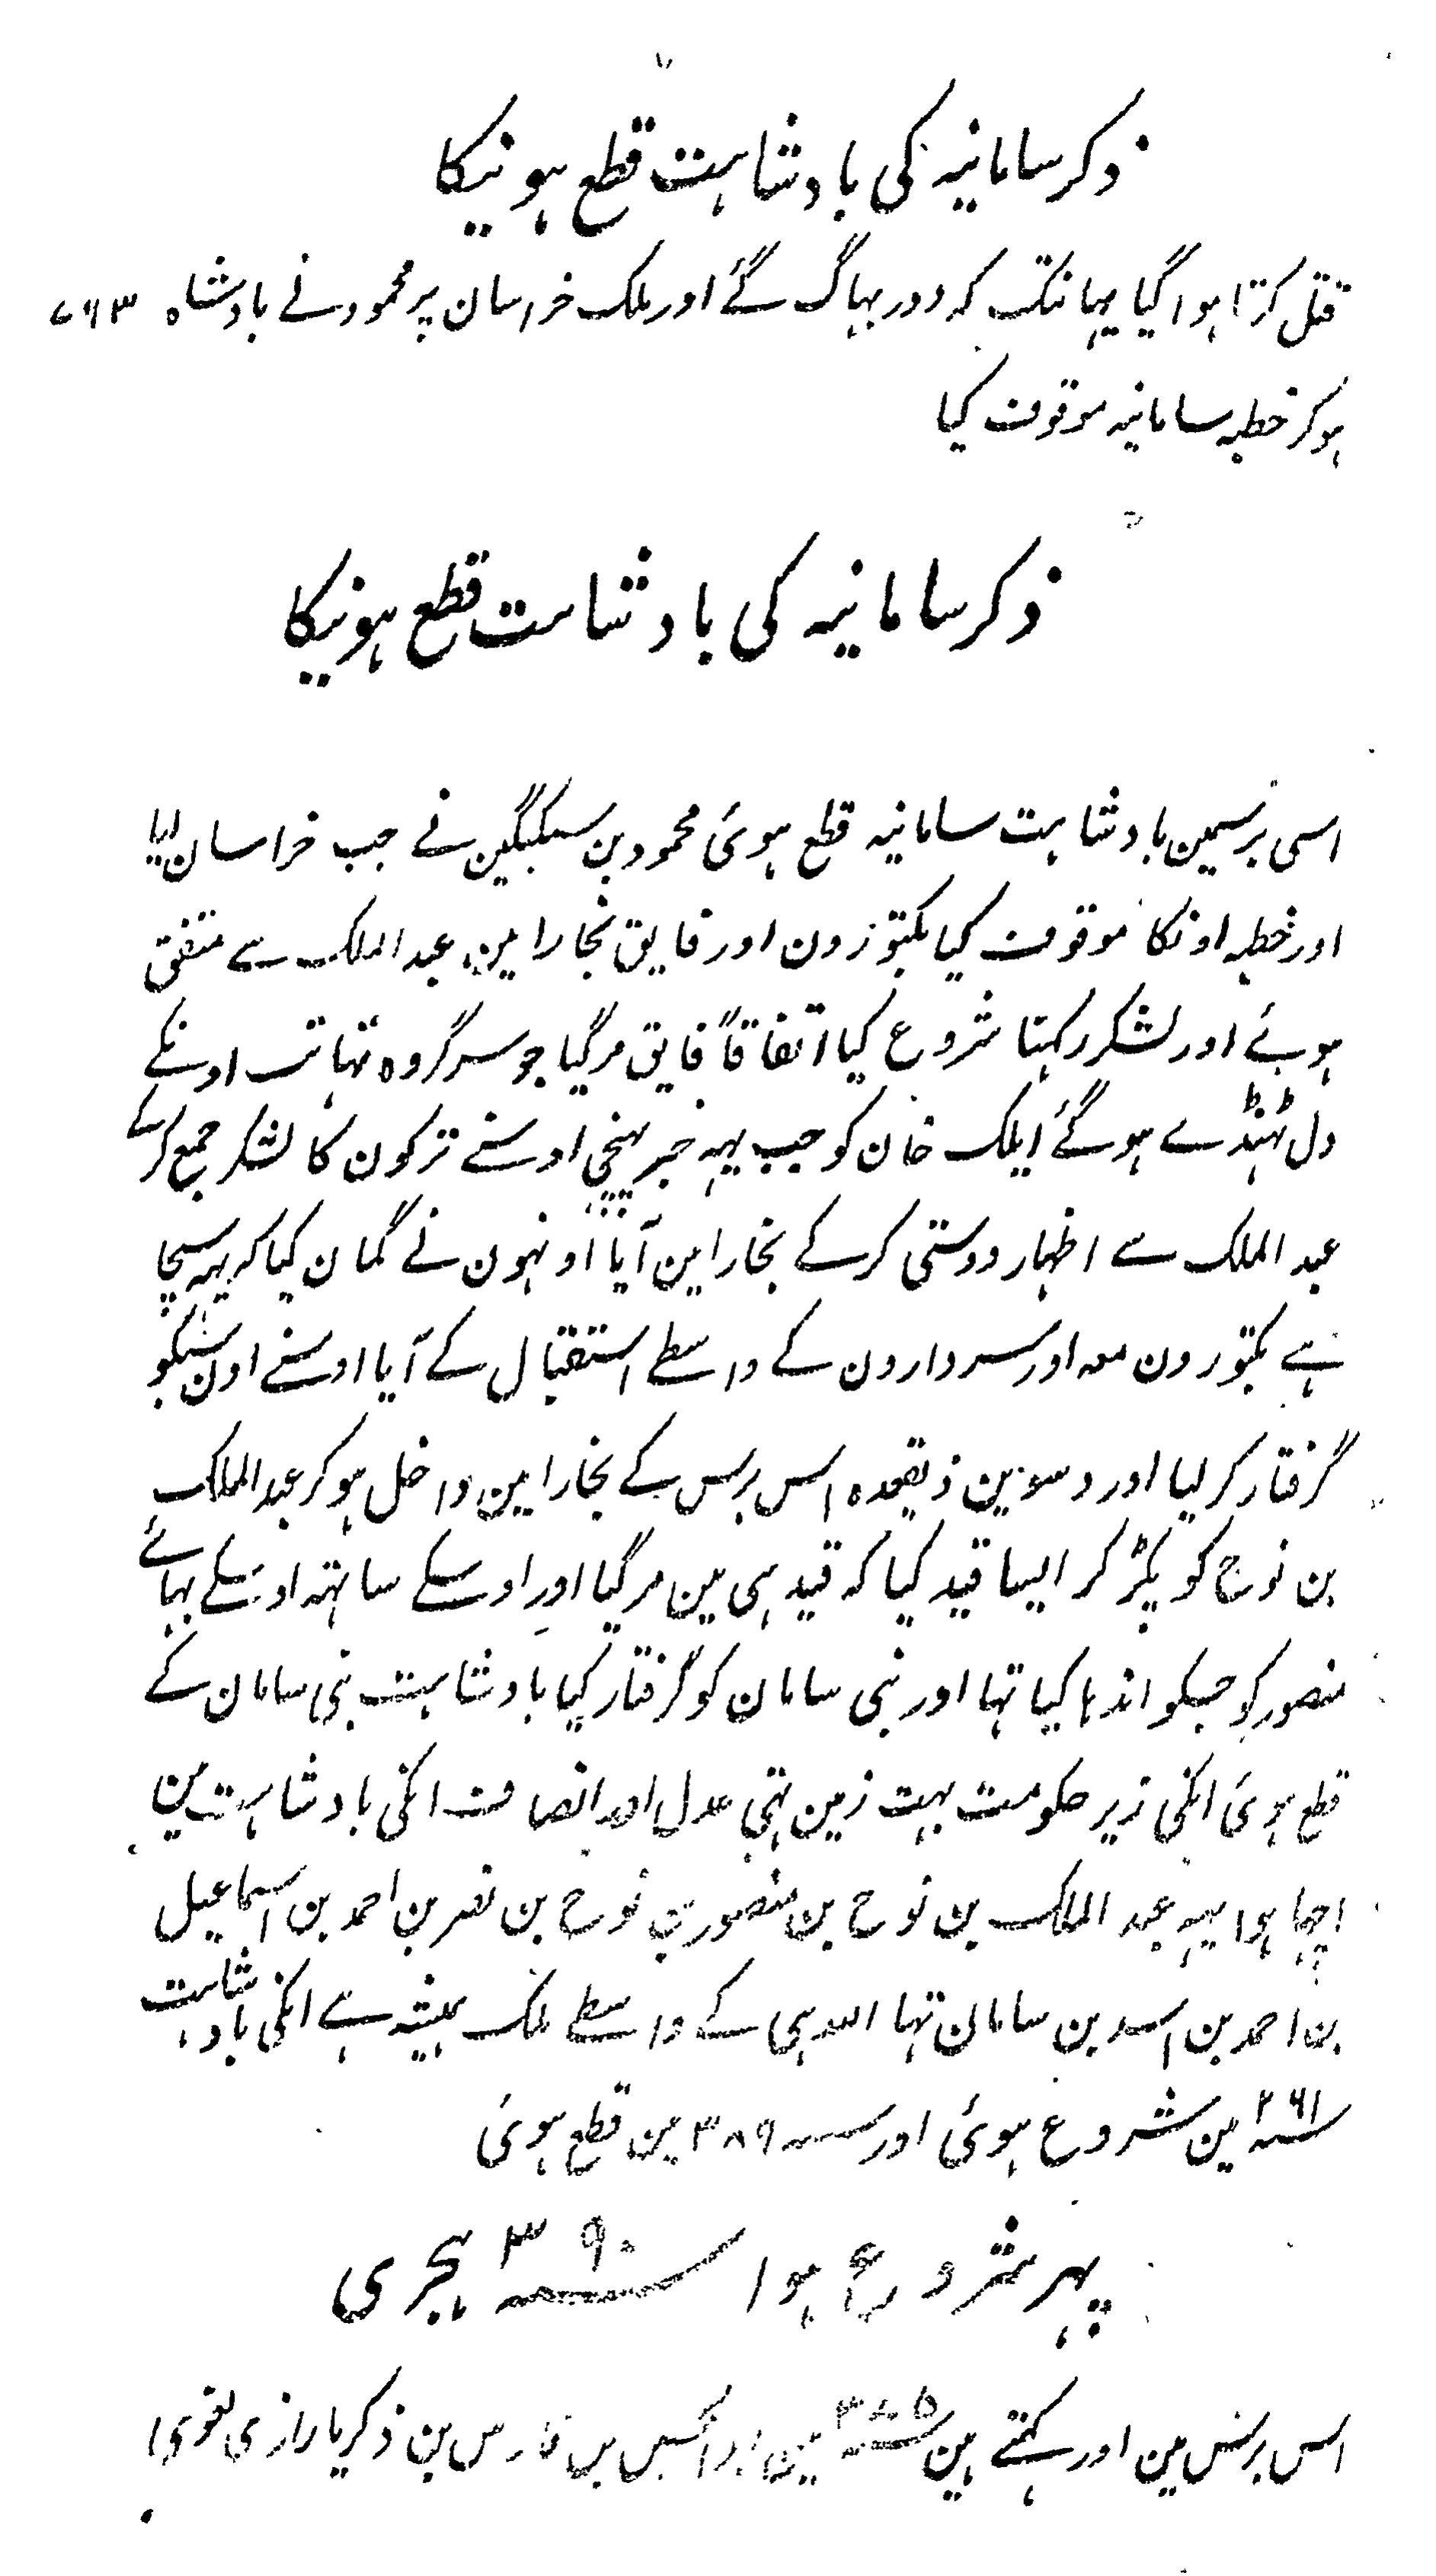 ذکر سامانیہ کی بادشاہت قطع ہونیکا
قتل کرتا ہوا گیا یہانتک کہ دور بہاگ گئے اور ملک خراسان پر محمود نے بادشاہ ۷۶۳
ہوکر خطبہ سامانیہ موقوف کیا
ذکر سامانیہ کی بادشاہت قطع ہونیکا
اسی برسمین بادشاہت سامانیہ قطع ہوئی محمود بن سبکتگین نے جب خراسان لیا
اور خطبہ اونکا موقوف کیا بکتوزون اور فایق بخارا مین عبد الملک سے متفق
ہوئے اور لشکر رکہتا شروع کیا اتفاقاً فایق مرگیا جو سرگروہ تہا تب اونکے
دل ٹہنڈے ہوگئے ایلک خان کو جب یہہ خبر پہنچی اوسنے ترکون کا لشکر جمع کرکے
عبد الملک سے اظہار دوستی کرکے بخارا مین آیا اونہون نے گمان کیا کہ یہہ سچا
ہے بکتوزون معہ اور سردارون کے واسطے استقبال کے آیا اوسنے اون سبکو
گرفتار کرلیا اور دسوین ذیقعدہ اس برس کے بخارا مین داخل ہوکر عبد الملک
بن نوح کو پکڑ کر ایسا قید کیا کہ قید ہی مین مرگیا اور اوسکے ساتہہ اوسکے بہائے
منصور کو جسکو اندہا کیا تہا اور بنی سامان کو گرفتار کیا بادشاہت بنی سامان کے
قطع ہوئی انکی زیر حکومت بہت زمین تہی عدل اور انصاف انکی بادشاہت مین
اچہا ہوا یہہ عبد الملک بن نوح بن منصور بن نوح بن نصر بن احمد بن اسماعیل
بن احمد بن اسد بن سامان تہا اللہ ہی کے واسطے ملک ہمیشہ ہے انکی بادشاہت
سنہ ۲۶۱ مین شروع ہوئی اور سنہ ۳۸۹ مین قطع ہوئی
پہر شروع ہوا سنہ ۳۹۰ ہجری
اس برس مین اور کہتے ہین سنہ ۳۸۵ مین ابو الحسین بن فارس بن ذکریا رازی لغوی